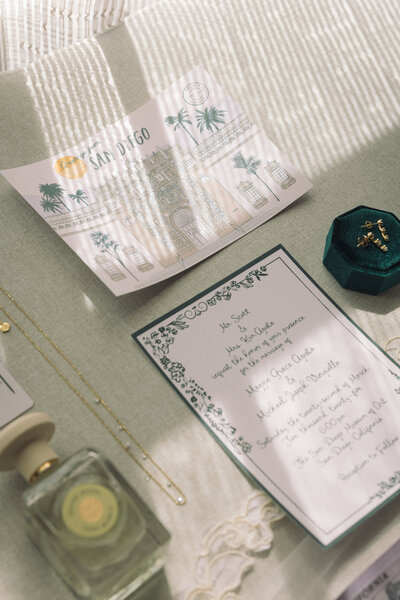 Greetings from
SAN DIEGO
Mr. Scott
&
Mrs.
request the honor of your presence
for the marriage of
Grace
&
Michael Joseph
Saturday the twenty-second of March
Two thousand twenty
6:00pm
The San Diego Museum of Art
San Diego California
Reception to Follow